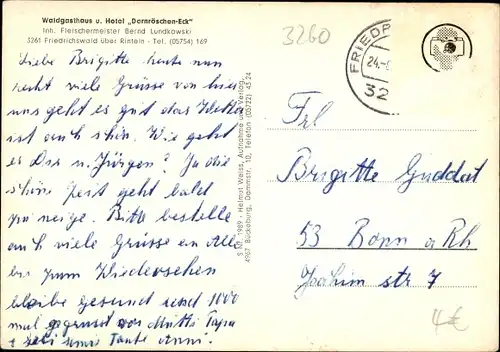 Waldgasthaus u. Hotel „Dornröschen-Eck"
Inh. Fleischermeister Bernd Lundkowski
3261 Friedrichswald über Rinteln - Tel. (05754) 169
Liebe Brigitte heute nun
recht viele Grüsse von hier
uns geht es gut das Wetter
ist auch schön. Wie geht
es Dir u. Jürgen? Ja die
schöne Zeit geht bald
zu neige. Bitte bestelle
auch viele Grüsse an Alle
bis zum Wiedersehen
bleibe gesund und 1000
mal gegrüsst von Mutti Papa
Tante Anni.
S Nr. 1989 - Helmut Weiss, Aufnahme und Verlag,
4967 Bückeburg, Dammstr. 10, Telefon (05722) 45 24
3260
FRIEDR
24.-
32
Frl
Brigitte Guddat
53 Bonn a Rh
Joachim str 7
4€